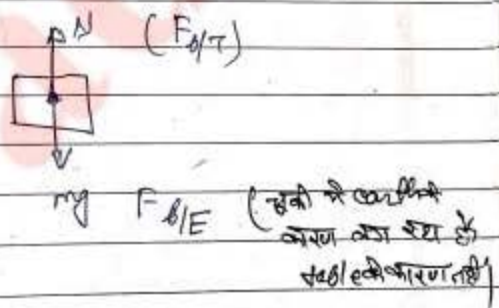 N (F b/T)
mg F b/E (चूंकी ये earth के
कारण लग रहा है
table के कारण नहीं)